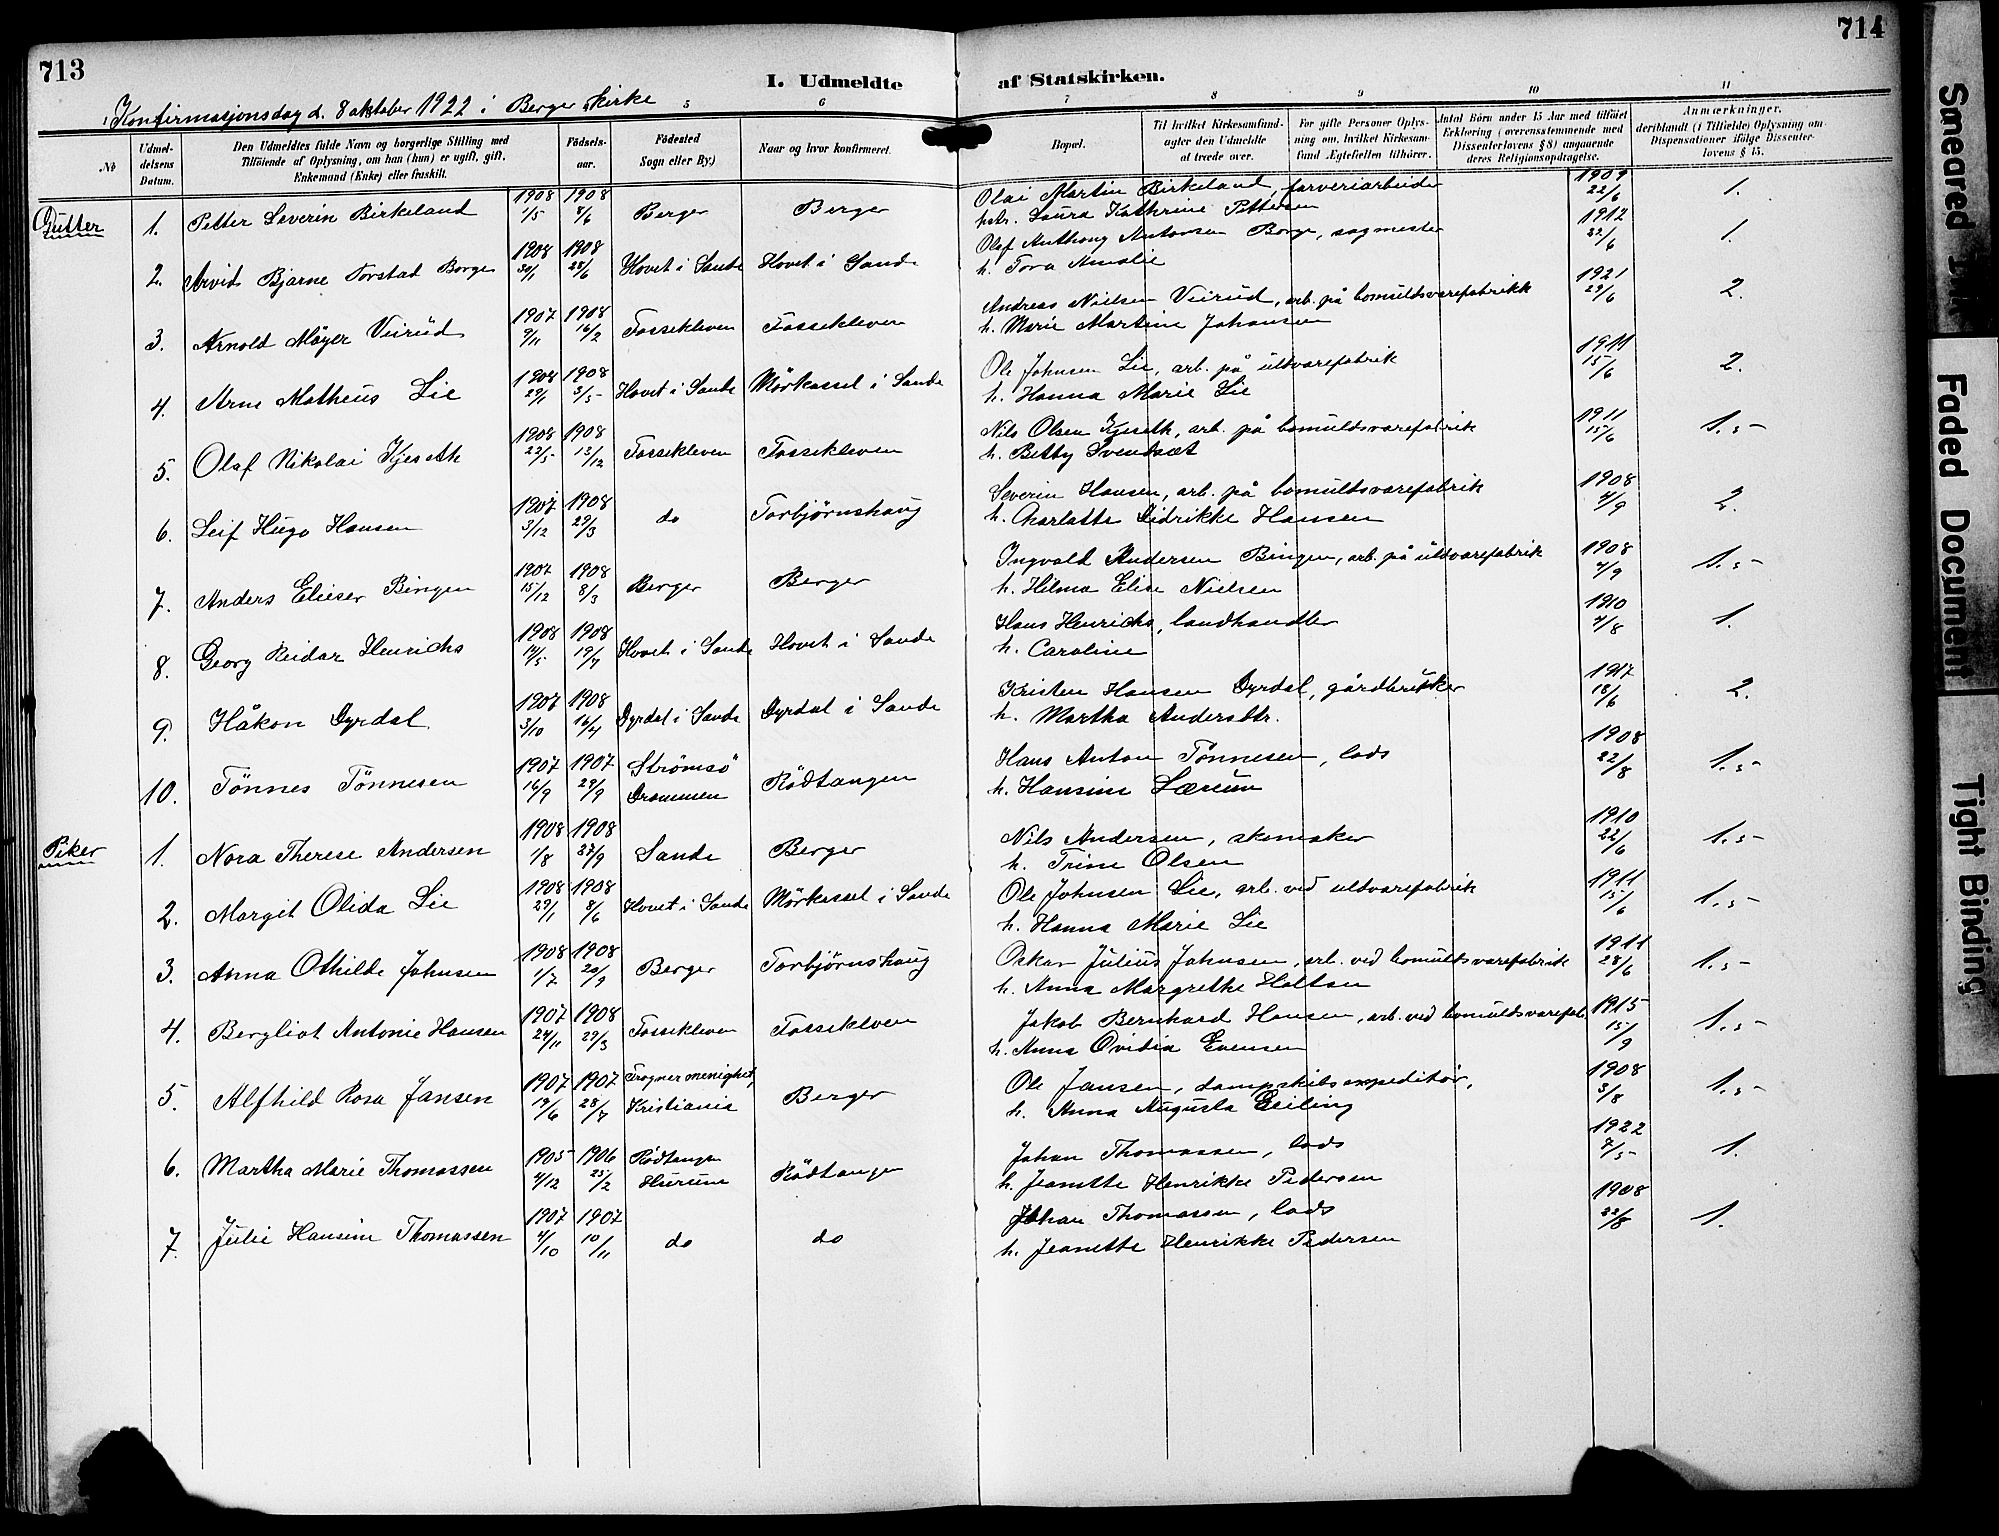 713
714
I. Udmeldte af Statskirken.
Konfirmasjonsdag d. 8 oktober 1922 i Berger kirke
5 6 7 8 9 10 11
№
Udmel-
delsens
Datum.
Den Udmeldtes fulde Navn og borgerlige Stilling med
Tilføiende af Oplysning, om han (hun) er ugift, gift,
Enkemand (Enke) eller fraskilt.
Fødsels-
aar.
Fødested
Sogn eller By.)
Naar og hvor konfirmeret.
Bopæl.
Til hvilket Kirkesamfund-
agter den Udmeldte
at træde over.
For gifte Personer Oplys-
ning om, hvilket Kirkesam-
fund Ægtefællen tilhører.
Antal Børn under 15 Aar med tilføiet
Erklæring (overensstemmende med
Dissenterlovens § 8) angaaende
deres Religionsopdragelse.
Anmærkninger,
deriblandt (i Tilfælde) Oplysning om
Dispensationer ifølge Dissenter-
lovens § 15.
Gutter
1. Petter Severin Birkeland 1908 1/5 1908 7/6 Berger Berger Olai Martin Birkeland, farveriarbeider 1909 22/6 1.
hstr. Laura Kathrine Pettersen
2. Arvid Bjarne Torstad Borge 1908 30/1 1908 28/6 Hovet i Sande Hovet i Sande Olaf Anthony Antonsen Borge, sagmester 1912 22/6 1.
h. Tora Amalie
3. Arnold Möyer Veirud 1907 9/11 1908 16/2 Fossekleven Fossekleven Andreas Nielsen Veirud, arb. på bomuldsvarefabrikk 1921 29/6 2.
h. Marie Martine Johansen
4. Arne Matheus Lie 1908 29/1 1908 3/5 Hovet i Sande Mörkassel i Sande Ole Johnsen Lie, arb. på uldvarefabrik 1911 15/6 2.
h. Hanna Marie Lie
5. Olaf Nikolai Kjeseth 1908 22/5 1908 13/12 Fossekleven Fossekleven Nils Olsen Kjeseth, arb. på bomuldsvarefabrik 1911 15/6 1.5
h. Betty Svendsæt
6. Leif Hugo Hansen 1907 3/12 1908 29/3 do Torbjørnshaug Severin Hansen, arb. på bomuldsvarefabrik 1908 4/9 2.
h. Charlotte Didrikke Hansen
7. Anders Elieser Bingen 1907 15/12 1908 8/3 Berger Berger Ingvald Andersen Bingen, arb. på uldvarefabrik 1908 4/9 1.5
h. Hilma Elise Nielsen
8. Georg Reidar Henrichs 1908 14/5 1908 19/7 Hovet i Sande Hovet i Sande Hans Henrichs, landhandler 1910 4/8 1.
h. Caroline
9. Håkon Dyrdal 1907 3/10 1908 16/4 Dyrdal i Sande Dyrdal i Sande Kristen Hansen Dyrdal, gårdbruker 1917 18/6 2.
h. Martha Andersdtr.
10. Tönnes Tönnesen 1907 16/9 1907 29/9 Strömsö Drammen Rödtangen Hans Anton Tönnesen, lods 1908 22/8 1.5
h. Hansine Lærum
Piker
1. Nora Therese Andersen 1908 1/8 1908 27/9 Sande Berger Nils Andersen, skomaker 1910 22/6 1.5
h. Trine Olsen
2. Margit Olida Lie 1908 29/1 1908 8/6 Hovet i Sande Mörkassel i Sande Ole Johnsen Lie, arb. ved uldvarefabrik 1911 15/6 1.5
h. Hanna Marie Lie
3. Anna Othilde Johnsen 1908 1/7 1908 20/9 Berger Torbjørnshaug Oskar Julius Johnsen, arb. ved bomuldsvarefabrik 1911 28/6 1.5
h. Anna Margrethe Holtan
4. Bergliot Antonie Hansen 1907 24/11 1908 29/3 Fossekleven Fossekleven Jakob Bernhard Hansen, arb. ved bomuldsvarefab. 1915 15/9 1.5
h. Anna Ovidia Evensen
5. Alfhild Rosa Jansen 1907 19/6 1907 28/7 Frogner menighet, Kristiania Berger Ole Jansen, dampskibsexpeditör, 1908 3/8 1.5
h. Anna Augusta Geiling
6. Martha Marie Thomassen 1905 4/12 1906 25/2 Rödtangen Hurum Rödtangen Johan Thomassen, lods 1922 7/5 1.
h. Jeanette Henrikke Pedersen
7. Julie Hansine Thomassen 1907 4/10 1907 10/11 do do Johan Thomassen, lods 1908 22/8 1.
h. Jeanette Henrikke Pedersen
Smeared Ink
Faded Document
Tight Binding